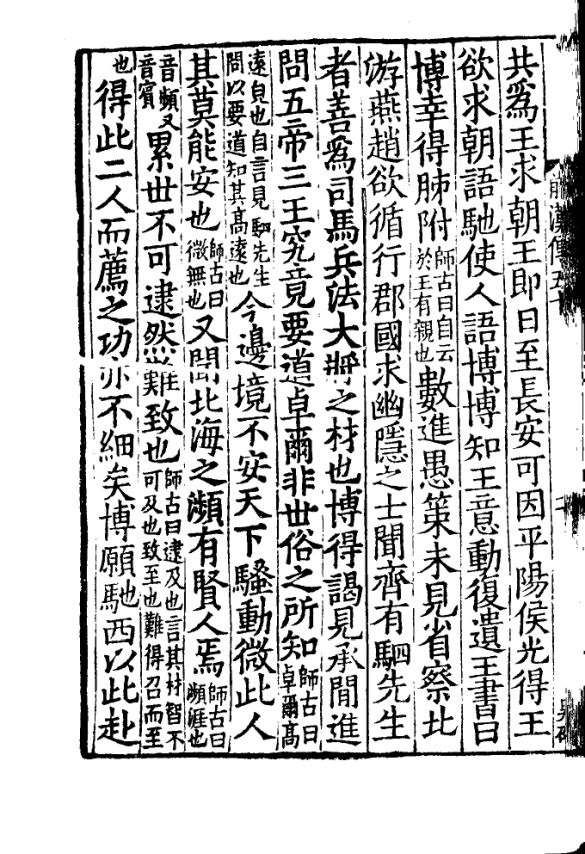 共爲王求朝王即日至長安可因平陽侯光得王
欲求朝語馳使人語博博知王意動復遺王書曰
博幸得肺附師古曰自云於王有親也數進愚策未見省察北
游燕趙欲循行郡國求幽隱之士聞齊有駟先生
者善爲司馬兵法大將之材也博得謁見承閒進
問五帝三王究竟要道卓爾非世俗之所知師古曰卓爾高
遠皃也自言見駟先生問以要道知其高遠也今邊境不安天下騷動微此人
其莫能安也師古曰微無也又聞北海之瀕有賢人焉師古曰瀕涯也
音頻又音賓累世不可逮然難致也師古曰逮及也言其材智不可及也致至也難得召而至
也得此二人而薦之功亦不細矣博願馳西以此赴